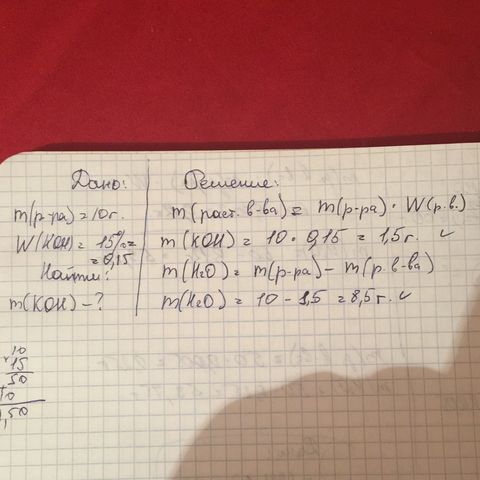 Дано:
m(р-ра) = 10г.
W(KOH) = 15% =
= 0,15
Найти:
m(KOH) - ?
Решение:
m(раст. в-ва) = m(р-ра) · W(р.в.)
m(KOH) = 10 · 0,15 = 1,5г. ✓
m(H2O) = m(р-ра) - m(р.в-ва)
m(H2O) = 10 - 1,5 = 8,5г. ✓
10
15
50
10
1,50